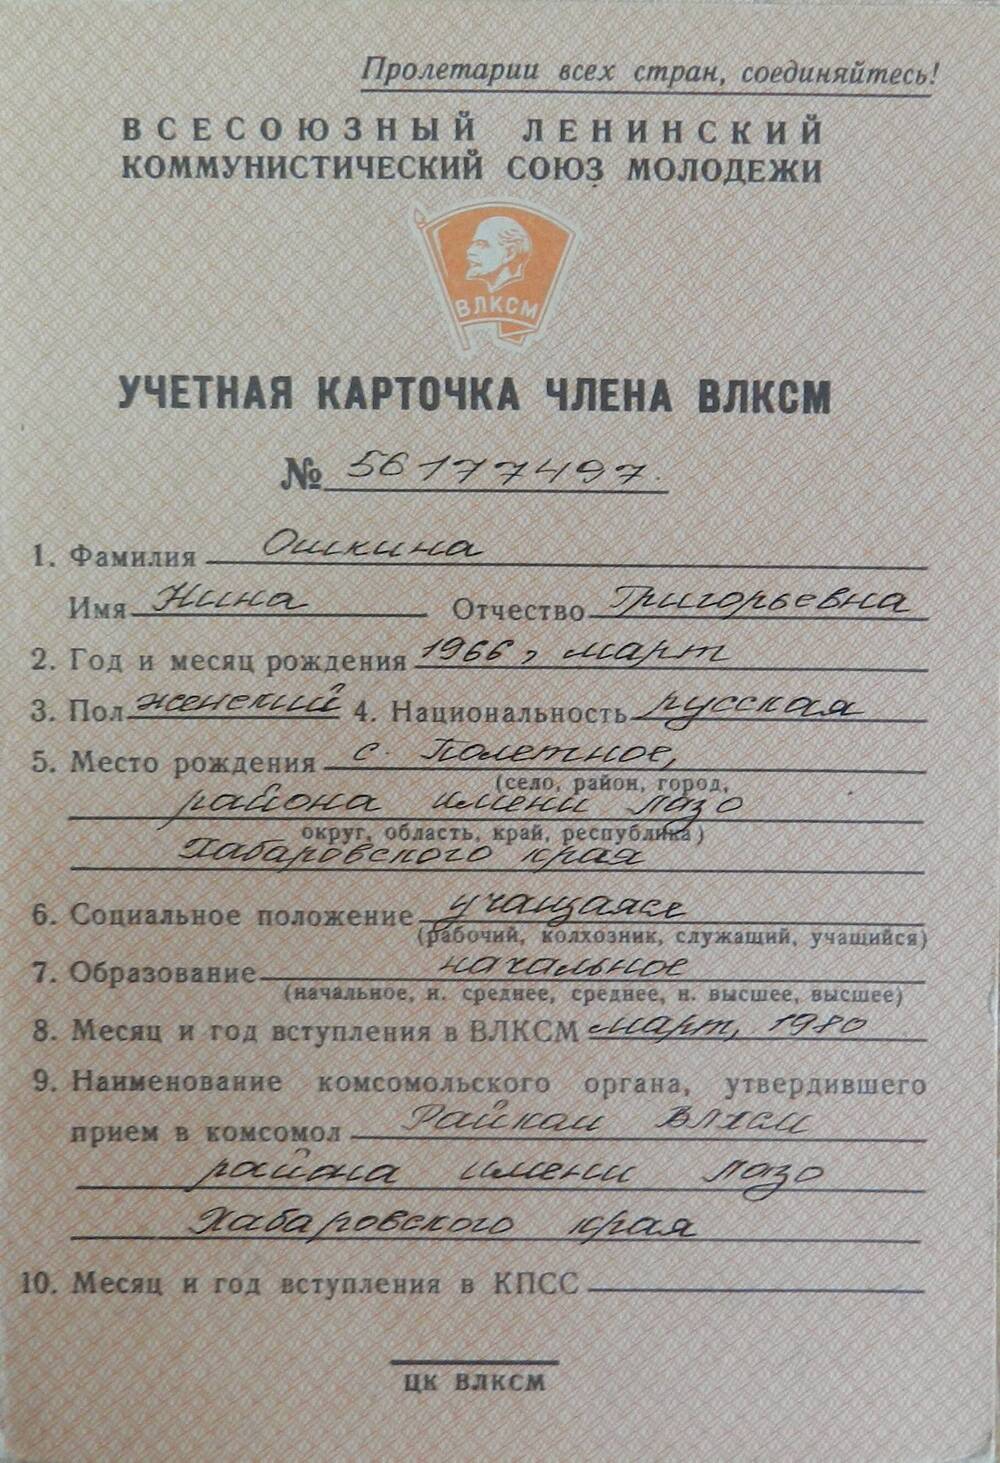 Пролетарии всех стран, соединяйтесь!
ВСЕСОЮЗНЫЙ ЛЕНИНСКИЙ
КОММУНИСТИЧЕСКИЙ СОЮЗ МОЛОДЕЖИ
ВЛКСМ
УЧЕТНАЯ КАРТОЧКА ЧЛЕНА ВЛКСМ
№ 56177497.
1. Фамилия Ошкина
Имя Нина Отчество Григорьевна
2. Год и месяц рождения 1966, март
3. Пол женский 4. Национальность русская
5. Место рождения с. Полетное,
(село, район, город,
района имени Лазо
округ, область, край, республика)
Хабаровского края
6. Социальное положение учащаяся
(рабочий, колхозник, служащий, учащийся)
7. Образование начальное
(начальное, н. среднее, среднее, н. высшее, высшее)
8. Месяц и год вступления в ВЛКСМ март, 1980
9. Наименование комсомольского органа, утвердившего
прием в комсомол Райком ВЛКСМ
района имени Лазо
Хабаровского края
10. Месяц и год вступления в КПСС
ЦК ВЛКСМ